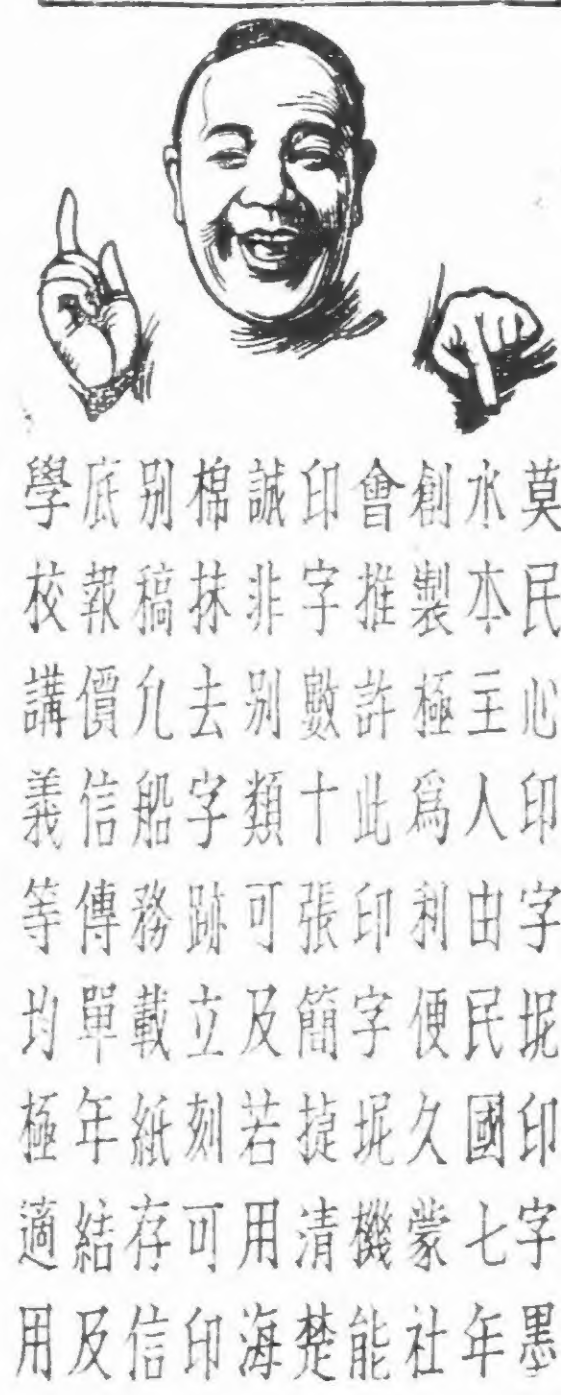 莫民心印字坭印字墨
水本主人由民國七年
創製極爲利便久蒙社
會推許此印字坭機能
印字數十張簡㨗清楚
誠非別類可及若用海
棉抹去字跡立刻可印
別稿凢船務載紙存信
底報價信傳單年結及
學校講義等均極適用